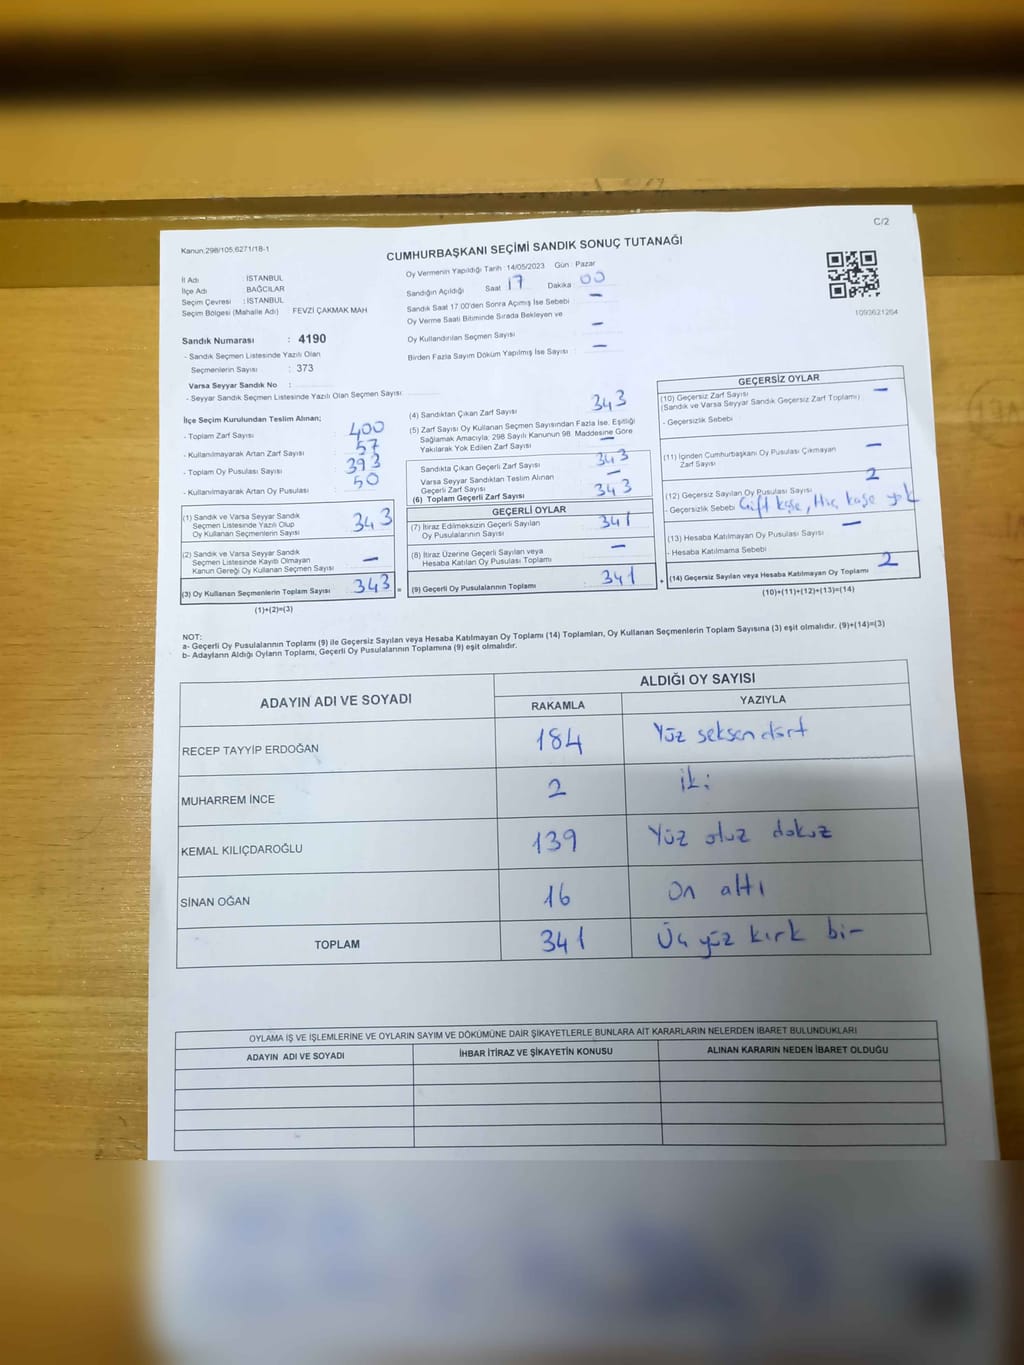 C/2
Kanun.298/105,6271/18-1
CUMHURBAŞKANI SEÇİMİ SANDIK SONUÇ TUTANAĞI
İl Adı : İSTANBUL
İlçe Adı : BAĞCILAR
Seçim Çevresi : İSTANBUL
Seçim Bölgesi (Mahalle Adı) : FEVZİ ÇAKMAK MAH
Sandık Numarası : 4190
- Sandık Seçmen Listesinde Yazılı Olan
Seçmenlerin Sayısı : 373
Varsa Seyyar Sandık No :
- Seyyar Sandık Seçmen Listesinde Yazılı Olan Seçmen Sayısı:
Oy Vermenin Yapıldığı Tarih :14/05/2023 Gün : Pazar
Sandığın Açıldığı Saat 17 Dakika 00
Sandık Saat 17.00'den Sonra Açılmış İse Sebebi –
Oy Verme Saati Bitiminde Sırada Bekleyen ve
Oy Kullandırılan Seçmen Sayısı –
Birden Fazla Sayım Döküm Yapılmış İse Sayısı : –
1093621264
İlçe Seçim Kurulundan Teslim Alınan;
- Toplam Zarf Sayısı : 400
- Kullanılmayarak Artan Zarf Sayısı : 57
- Toplam Oy Pusulası Sayısı : 393
- Kullanılmayarak Artan Oy Pusulası : 50
(1) Sandık ve Varsa Seyyar Sandık
Seçmen Listesinde Yazılı Olup
Oy Kullanan Seçmenlerin Sayısı : 343
(2) Sandık ve Varsa Seyyar Sandık
Seçmen Listesinde Kayıtlı Olmayan
Kanun Gereği Oy Kullanan Seçmen Sayısı : –
(3) Oy Kullanan Seçmenlerin Toplam Sayısı : 343 =
(1)+(2)=(3)
(4) Sandıktan Çıkan Zarf Sayısı : 343
(5) Zarf Sayısı Oy Kullanan Seçmen Sayısından Fazla İse, Eşitliği
Sağlamak Amacıyla; 298 Sayılı Kanunun 98. Maddesine Göre
Yakılarak Yok Edilen Zarf Sayısı : –
Sandıkta Çıkan Geçerli Zarf Sayısı : 343
Varsa Seyyar Sandıktan Teslim Alınan
Geçerli Zarf Sayısı : –
(6) Toplam Geçerli Zarf Sayısı : 343
GEÇERLİ OYLAR
(7) İtiraz Edilmeksizin Geçerli Sayılan
Oy Pusulalarının Sayısı : 341
(8) İtiraz Üzerine Geçerli Sayılan veya
Hesaba Katılan Oy Pusulası Toplamı : –
(9) Geçerli Oy Pusulalarının Toplamı : 341 +
GEÇERSİZ OYLAR
(10) Geçersiz Zarf Sayısı –
(Sandık ve Varsa Seyyar Sandık Geçersiz Zarf Toplamı) :
- Geçersizlik Sebebi :
(11) İçinden Cumhurbaşkanı Oy Pusulası Çıkmayan
Zarf Sayısı : –
(12) Geçersiz Sayılan Oy Pusulası Sayısı : 2
- Geçersizlik Sebebi : Çift kaşe, Hiç kaşe yok
(13) Hesaba Katılmayan Oy Pusulası Sayısı : –
- Hesaba Katılmama Sebebi :
(14) Geçersiz Sayılan veya Hesaba Katılmayan Oy Toplamı : 2
(10)+(11)+(12)+(13)=(14)
NOT:
a- Geçerli Oy Pusulalarının Toplamı (9) ile Geçersiz Sayılan veya Hesaba Katılmayan Oy Toplamı (14) Toplamları, Oy Kullanan Seçmenlerin Toplam Sayısına (3) eşit olmalıdır. (9)+(14)=(3)
b- Adayların Aldığı Oyların Toplamı, Geçerli Oy Pusulalarının Toplamına (9) eşit olmalıdır.
ADAYIN ADI VE SOYADI ALDIĞI OY SAYISI
RAKAMLA YAZIYLA
RECEP TAYYİP ERDOĞAN 184 Yüz seksen dört
MUHARREM İNCE 2 iki
KEMAL KILIÇDAROĞLU 139 Yüz otuz dokuz
SİNAN OĞAN 16 On altı
TOPLAM 341 Üç yüz kırk bir
OYLAMA İŞ VE İŞLEMLERİNE VE OYLARIN SAYIM VE DÖKÜMÜNE DAİR ŞİKAYETLERLE BUNLARA AİT KARARLARIN NELERDEN İBARET BULUNDUKLARI
ADAYIN ADI VE SOYADI İHBAR İTİRAZ VE ŞİKAYETİN KONUSU ALINAN KARARIN NEDEN İBARET OLDUĞU